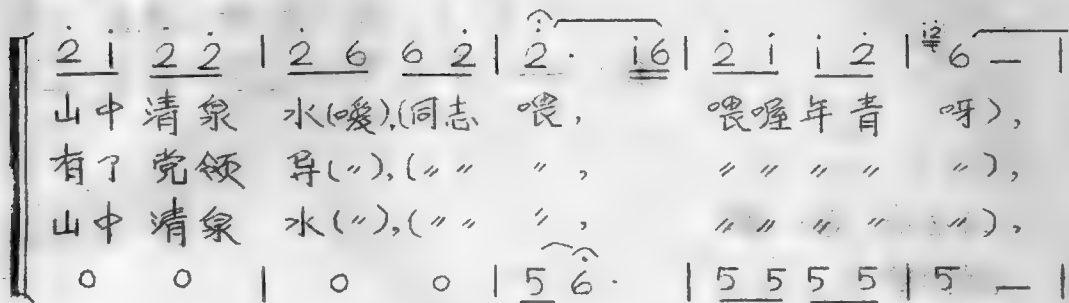 2̇ i̇ 2̇ 2̇ | 2̇ 6 6 2̇ | 2̇ · i̇6 | 2̇ i̇ i̇ 2̇ | i̇2̇ 6 — |
山中清泉 水(嗳),(同志 喂, 喂喔年青 呀),
有了党领 导(〃),(〃〃 〃, 〃〃〃〃 〃),
山中清泉 水(〃),(〃〃 〃, 〃〃〃〃 〃),
0 0 | 0 0 | 5 6 · | 5 5 5 5 | 5 — |